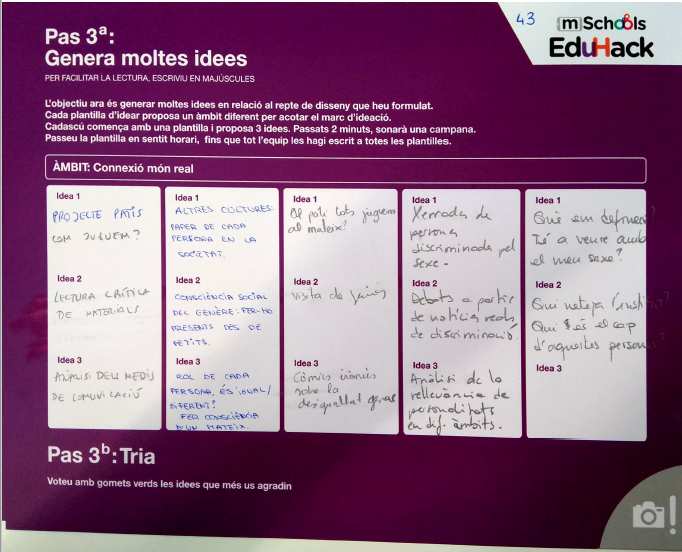 43
mSchools
EduHack
Pas 3ª:
Genera moltes idees
PER FACILITAR LA LECTURA, ESCRIVIU EN MAJÚSCULES
L'objectiu ara és generar moltes idees en relació al repte de disseny que heu formulat.
Cada plantilla d'idear proposa un àmbit diferent per acotar el marc d'ideació.
Cadascú comença amb una plantilla i proposa 3 idees. Passats 2 minuts, sonarà una campana.
Passeu la plantilla en sentit horari, fins que tot l'equip les hagi escrit a totes les plantilles.
ÀMBIT: Connexió món real
Idea 1
PROJECTE PATIS
COM JUGUEM?
Idea 2
LECTURA CRÍTICA
DE MATERIALS
Idea 3
ANÀLISI DELS MEDIS
DE COMUNICACIÓ
Idea 1
ALTRES CULTURES:
PAPER DE CADA
PERSONA EN LA
SOCIETAT.
Idea 2
CONSCIÈNCIA SOCIAL
DEL GÈNERE: FER-HO
PRESENTS DES DE
PETITS.
Idea 3
ROL DE CADA
PERSONA, ÉS IGUAL/
DIFERENT?
FER CONSCIÈNCIA
D'UN MATEIX.
Idea 1
Al pati tots juguem
al mateix?
Idea 2
Visita de
Idea 3
Còmics irònics
sobre la
desigualtat
Idea 1
Xerrada de
persona
discriminada pel
sexe.
Idea 2
Debats a partir
de notícies reals
de discriminació
Idea 3
Anàlisi de la
rellevància de
personalitats
en dif. àmbits.
Idea 1
Què em defineix?
Té a veure amb
el meu sexe?
Idea 2
Qui neteja l'institut?
Qui és el cap
d'aquestes persones?
Idea 3
Pas 3ᵇ: Tria
Voteu amb gomets verds les idees que més us agradin